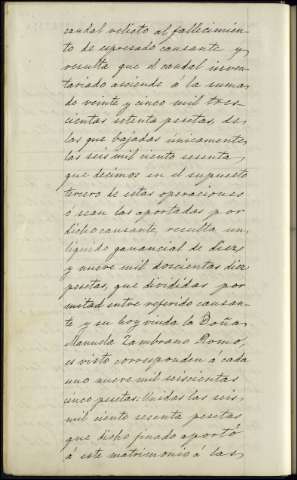 caudal relicto al fallecimien-
to de espresado causante y
resulta que el caudal inven-
tariado asciende á la suma
de veinte y cinco mil tres-
cientas setenta pesetas, de
las que bajadas únicamente
las seis mil ciento sesenta,
que decimos en el supuesto
tercero de estas operaciones
o sean las aportadas por
dicho causante, resulta un
líquido ganancial de diez
y nueve mil doscientas diez
pesetas, que divididas por
mitad entre referido causan-
te y su hoy viuda la Doña
Manuela Zambrano Romo,
es visto corresponden á cada
uno nueve mil seiscientas
cinco pesetas. Unidas las seis
mil ciento sesenta pesetas
que dicho finado aportó
á este matrimonio á las